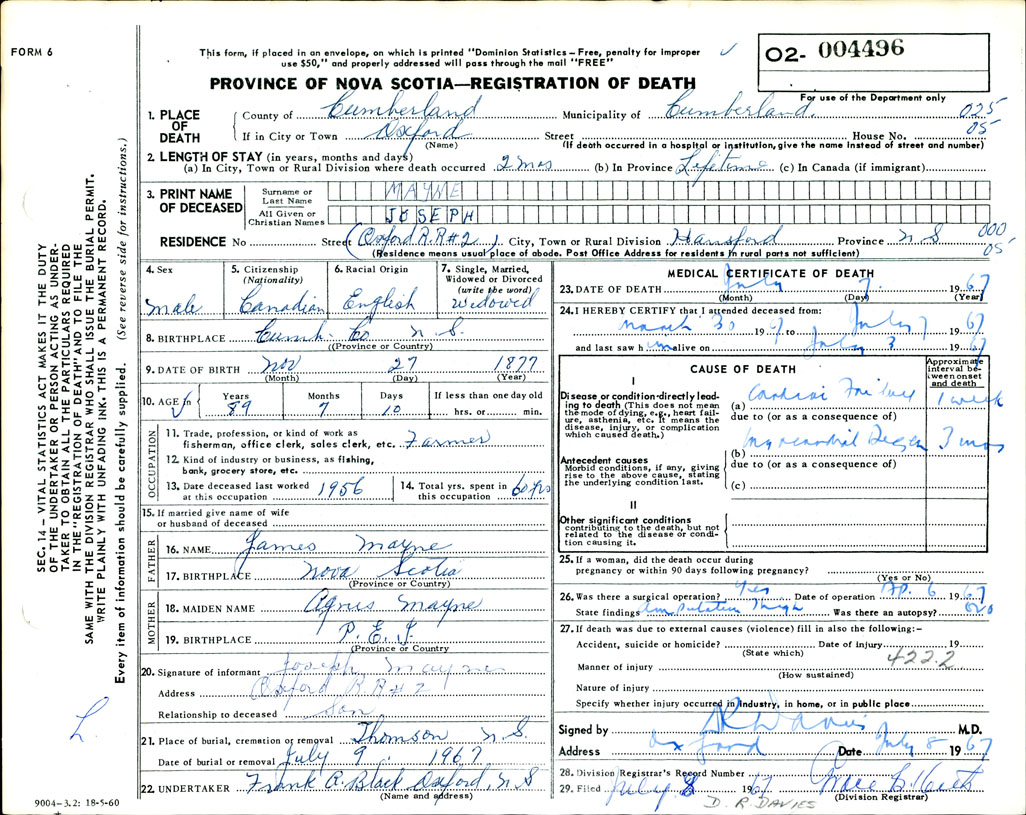 FORM 6
This form, if placed in an envelope, on which is printed "Dominion Statistics – Free, penalty for improper
use $50," and properly addressed will pass through the mail "FREE"
02- 004496
PROVINCE OF NOVA SCOTIA—REGISTRATION OF DEATH
For use of the Department only
SEC. 14 – VITAL STATISTICS ACT MAKES IT THE DUTY
OF THE UNDERTAKER OR PERSON ACTING AS UNDER-
TAKER TO OBTAIN ALL THE PARTICULARS REQUIRED
IN THE "REGISTRATION OF DEATH" AND TO FILE THE
SAME WITH THE DIVISION REGISTRAR WHO SHALL ISSUE THE BURIAL PERMIT.
WRITE PLAINLY WITH UNFADING INK. THIS IS A PERMANENT RECORD.
Every item of information should be carefully supplied. (See reverse side for instructions.)
1. PLACE OF DEATH
County of Cumberland Municipality of Cumberland. 025
If in City or Town Oxford Street House No. 05
(Name) (If death occurred in a hospital or institution, give the name instead of street and number)
2. LENGTH OF STAY (in years, months and days)
(a) In City, Town or Rural Division where death occurred 2 mos (b) In Province Lifetime (c) In Canada (if immigrant)
3. PRINT NAME OF DECEASED
Surname or Last Name MAYNE
All Given or Christian Names JOSEPH
RESIDENCE No Street (Oxford R.R#2) City, Town or Rural Division Hansford Province N S 000
05
(Residence means usual place of abode. Post Office Address for residents in rural parts not sufficient)
4. Sex male
5. Citizenship (Nationality) Canadian
6. Racial Origin English
7. Single, Married, Widowed or Divorced (write the word) widowed
8. BIRTHPLACE Cumb. Co N.S.
(Province or Country)
9. DATE OF BIRTH Nov 27 1877
(Month) (Day) (Year)
10. AGE in Years 89 Months 7 Days 10 If less than one day old hrs. or min.
OCCUPATION
11. Trade, profession, or kind of work as
fisherman, office clerk, sales clerk, etc. Farmer
12. Kind of industry or business, as fishing,
bank, grocery store, etc.
13. Date deceased last worked at this occupation 1956
14. Total yrs. spent in this occupation 60 yrs
15. If married give name of wife
or husband of deceased
FATHER
16. NAME James Mayne
17. BIRTHPLACE Nova Scotia
(Province or Country)
MOTHER
18. MAIDEN NAME Agnes Mayne
19. BIRTHPLACE P.E.I.
(Province or Country
20. Signature of informant Joseph Mayne
Address Oxford R.R#2
Relationship to deceased son
21. Place of burial, cremation or removal Thomson N.S.
Date of burial or removal July 9 1967
22. UNDERTAKER Frank A. Black Oxford, N S
(Name and address)
L.
9004–3.2: 18-5-60
MEDICAL CERTIFICATE OF DEATH
23. DATE OF DEATH July 7. 1967
(Month) (Day) (Year)
24. I HEREBY CERTIFY that I attended deceased from:
March 30 1967 to July 7 1967
and last saw him alive on July 3 1967
CAUSE OF DEATH
Approximate interval between onset and death
I
Disease or condition directly lead-
ing to death (This does not mean
the mode of dying, e.g., heart fail-
ure, asthenia, etc. It means the
disease, injury, or complication
which caused death.)
(a) Cardiac Failure 1 week
due to (or as a consequence of)
Antecedent causes
Morbid conditions, if any, giving
rise to the above cause, stating
the underlying condition last.
(b) Myocardial Degen 3 mos
due to (or as a consequence of)
(c)
II
Other significant conditions
contributing to the death, but not
related to the disease or condi-
tion causing it.
25. If a woman, did the death occur during
pregnancy or within 90 days following pregnancy?
(Yes or No)
26. Was there a surgical operation? Yes Date of operation Ap. 6 1967
State findings amputation thigh Was there an autopsy? no
27. If death was due to external causes (violence) fill in also the following:–
Accident, suicide or homicide? Date of injury 19
(State which) 422.2
Manner of injury
(How sustained)
Nature of injury
Specify whether injury occurred in industry, in home, or in public place
Signed by D R Davies M.D.
Address Oxford Date July 8 1967
28. Division Registrar's Record Number
29. Filed July 8 1967
(Division Registrar)
D. R. DAVIES